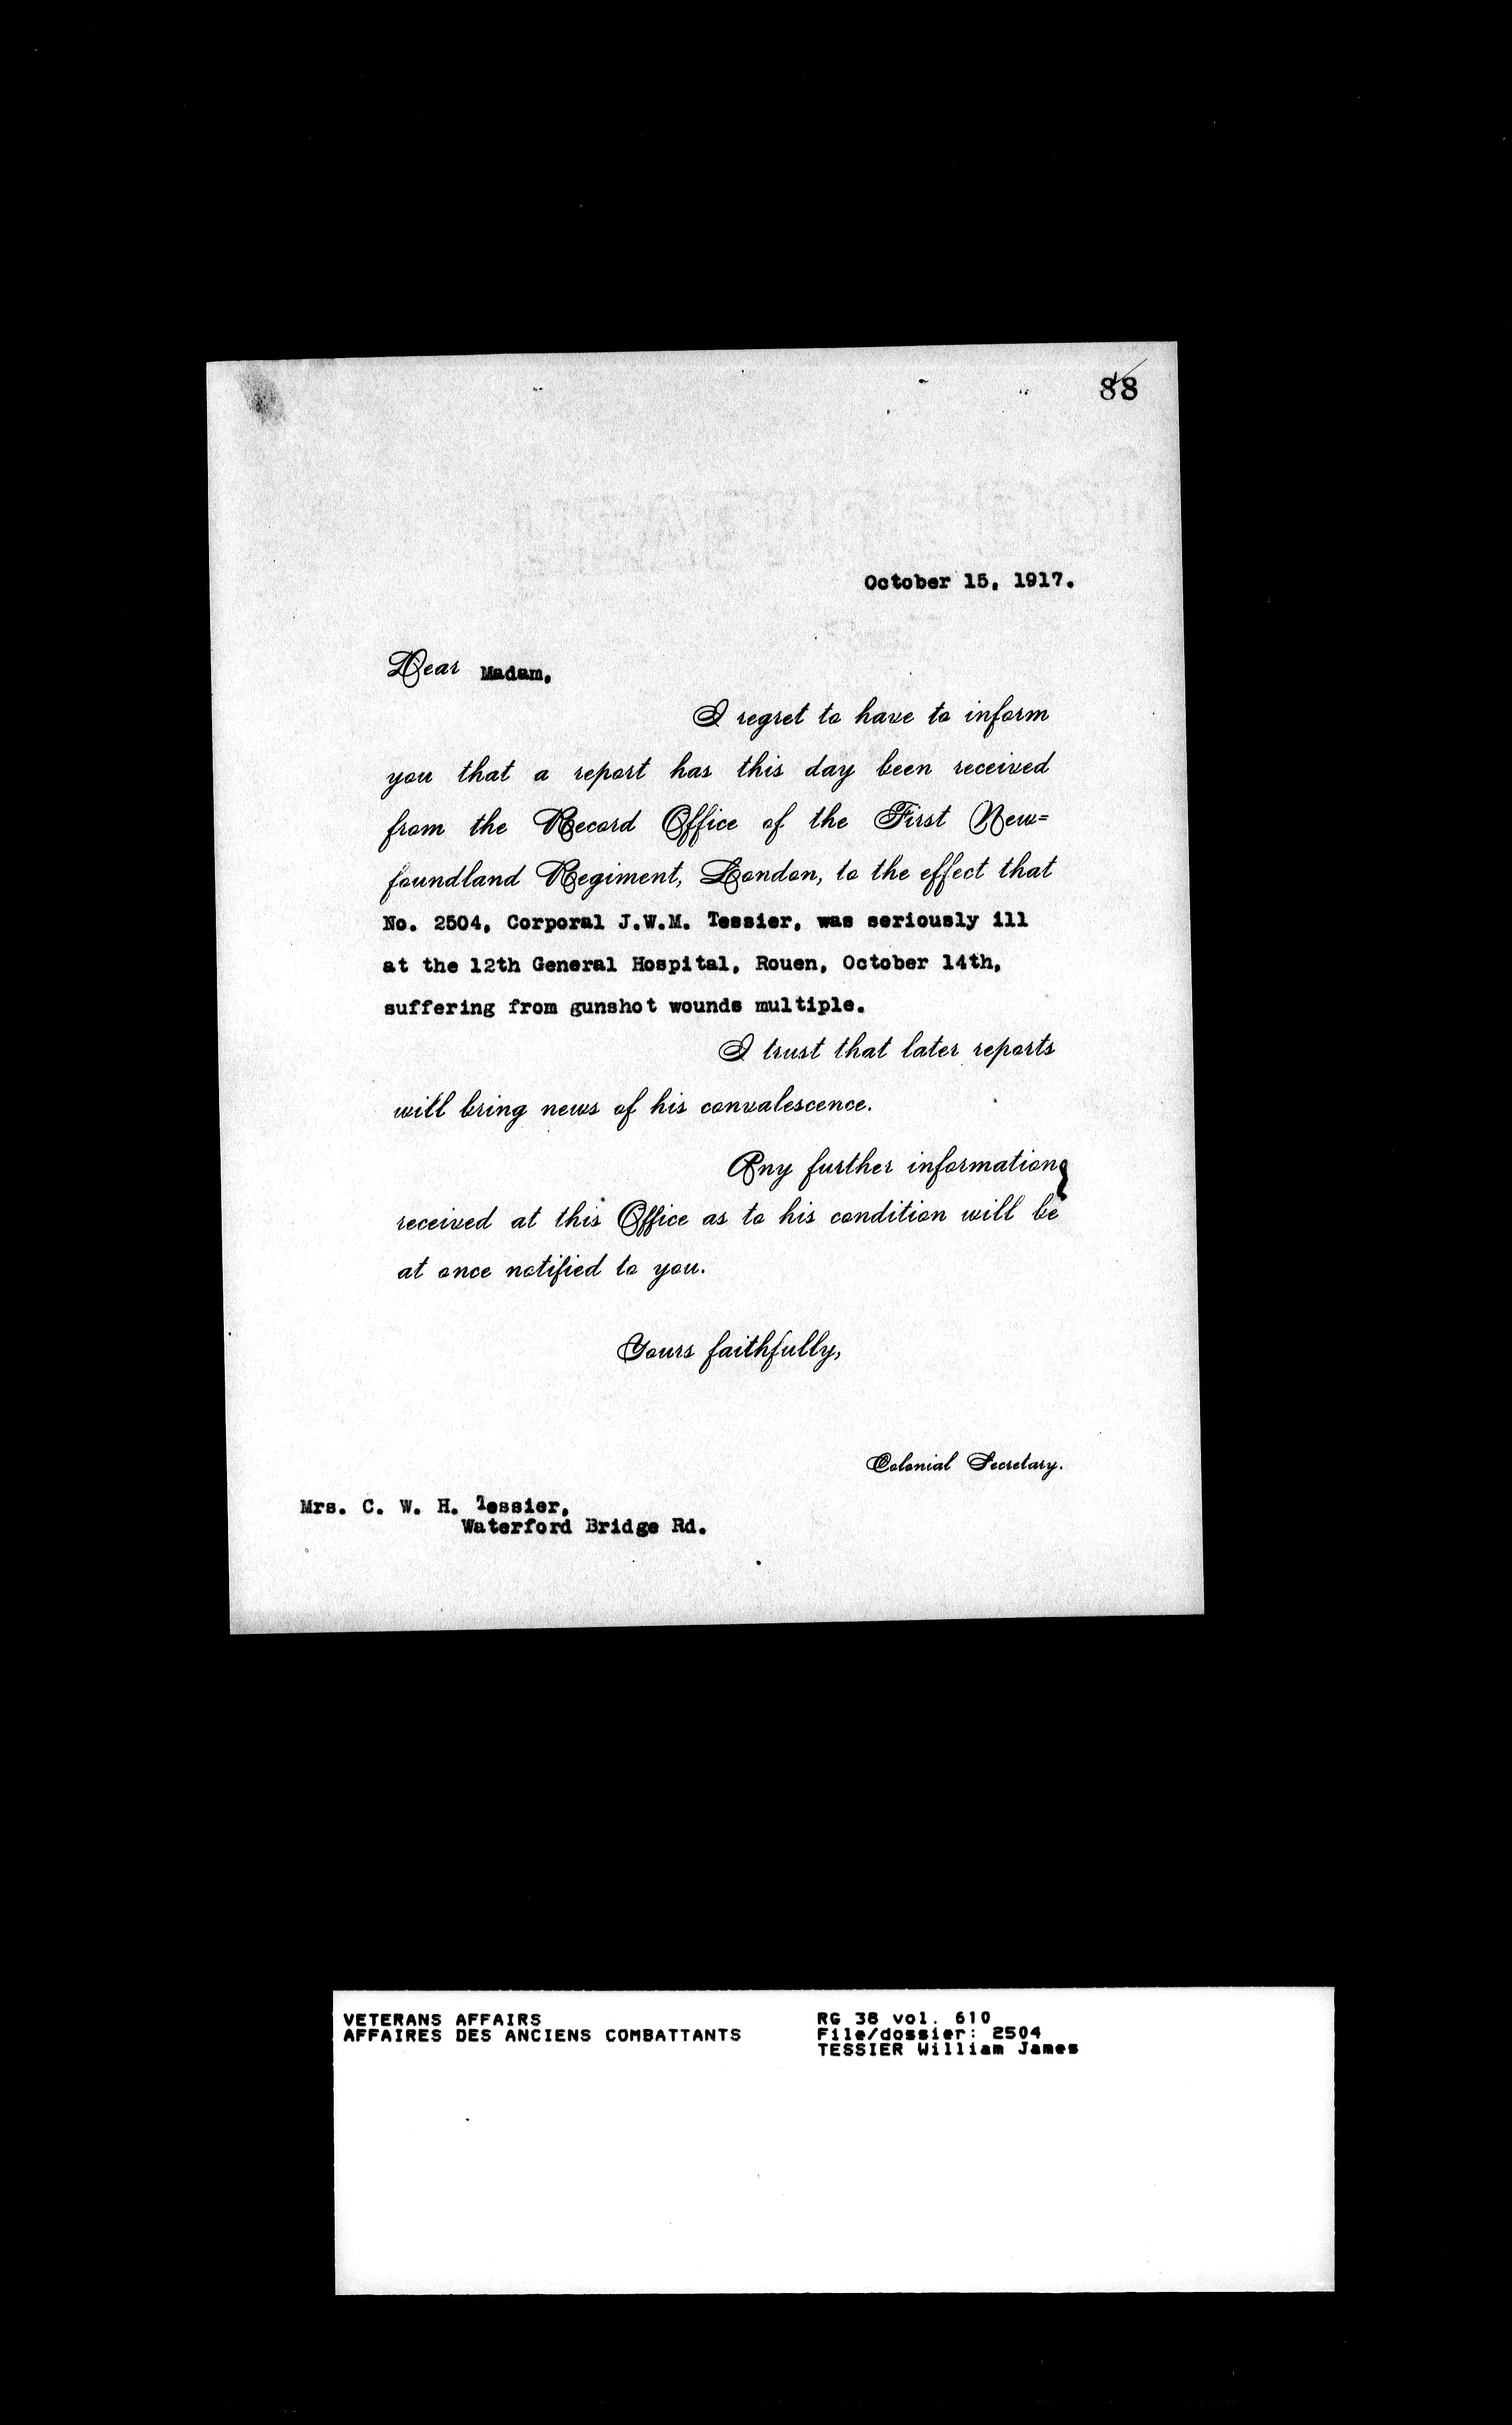 88
October 15, 1917.
Dear Madam,
I regret to have to inform
you that a report has this day been received
from the Record Office of the First New=
foundland Regiment, London, to the effect that
No. 2504, Corporal J.W.M. Tessier, was seriously ill
at the 12th General Hospital, Rouen, October 14th,
suffering from gunshot wounds multiple.
I trust that later reports
will bring news of his convalescence.
Any further information
received at this Office as to his condition will be
at once notified to you.
Yours faithfully,
Colonial Secretary.
Mrs. C. W. H. Tessier,
Waterford Bridge Rd.
VETERANS AFFAIRS
AFFAIRES DES ANCIENS COMBATTANTS
RG 38 vol. 610
File/dossier: 2504
TESSIER William James